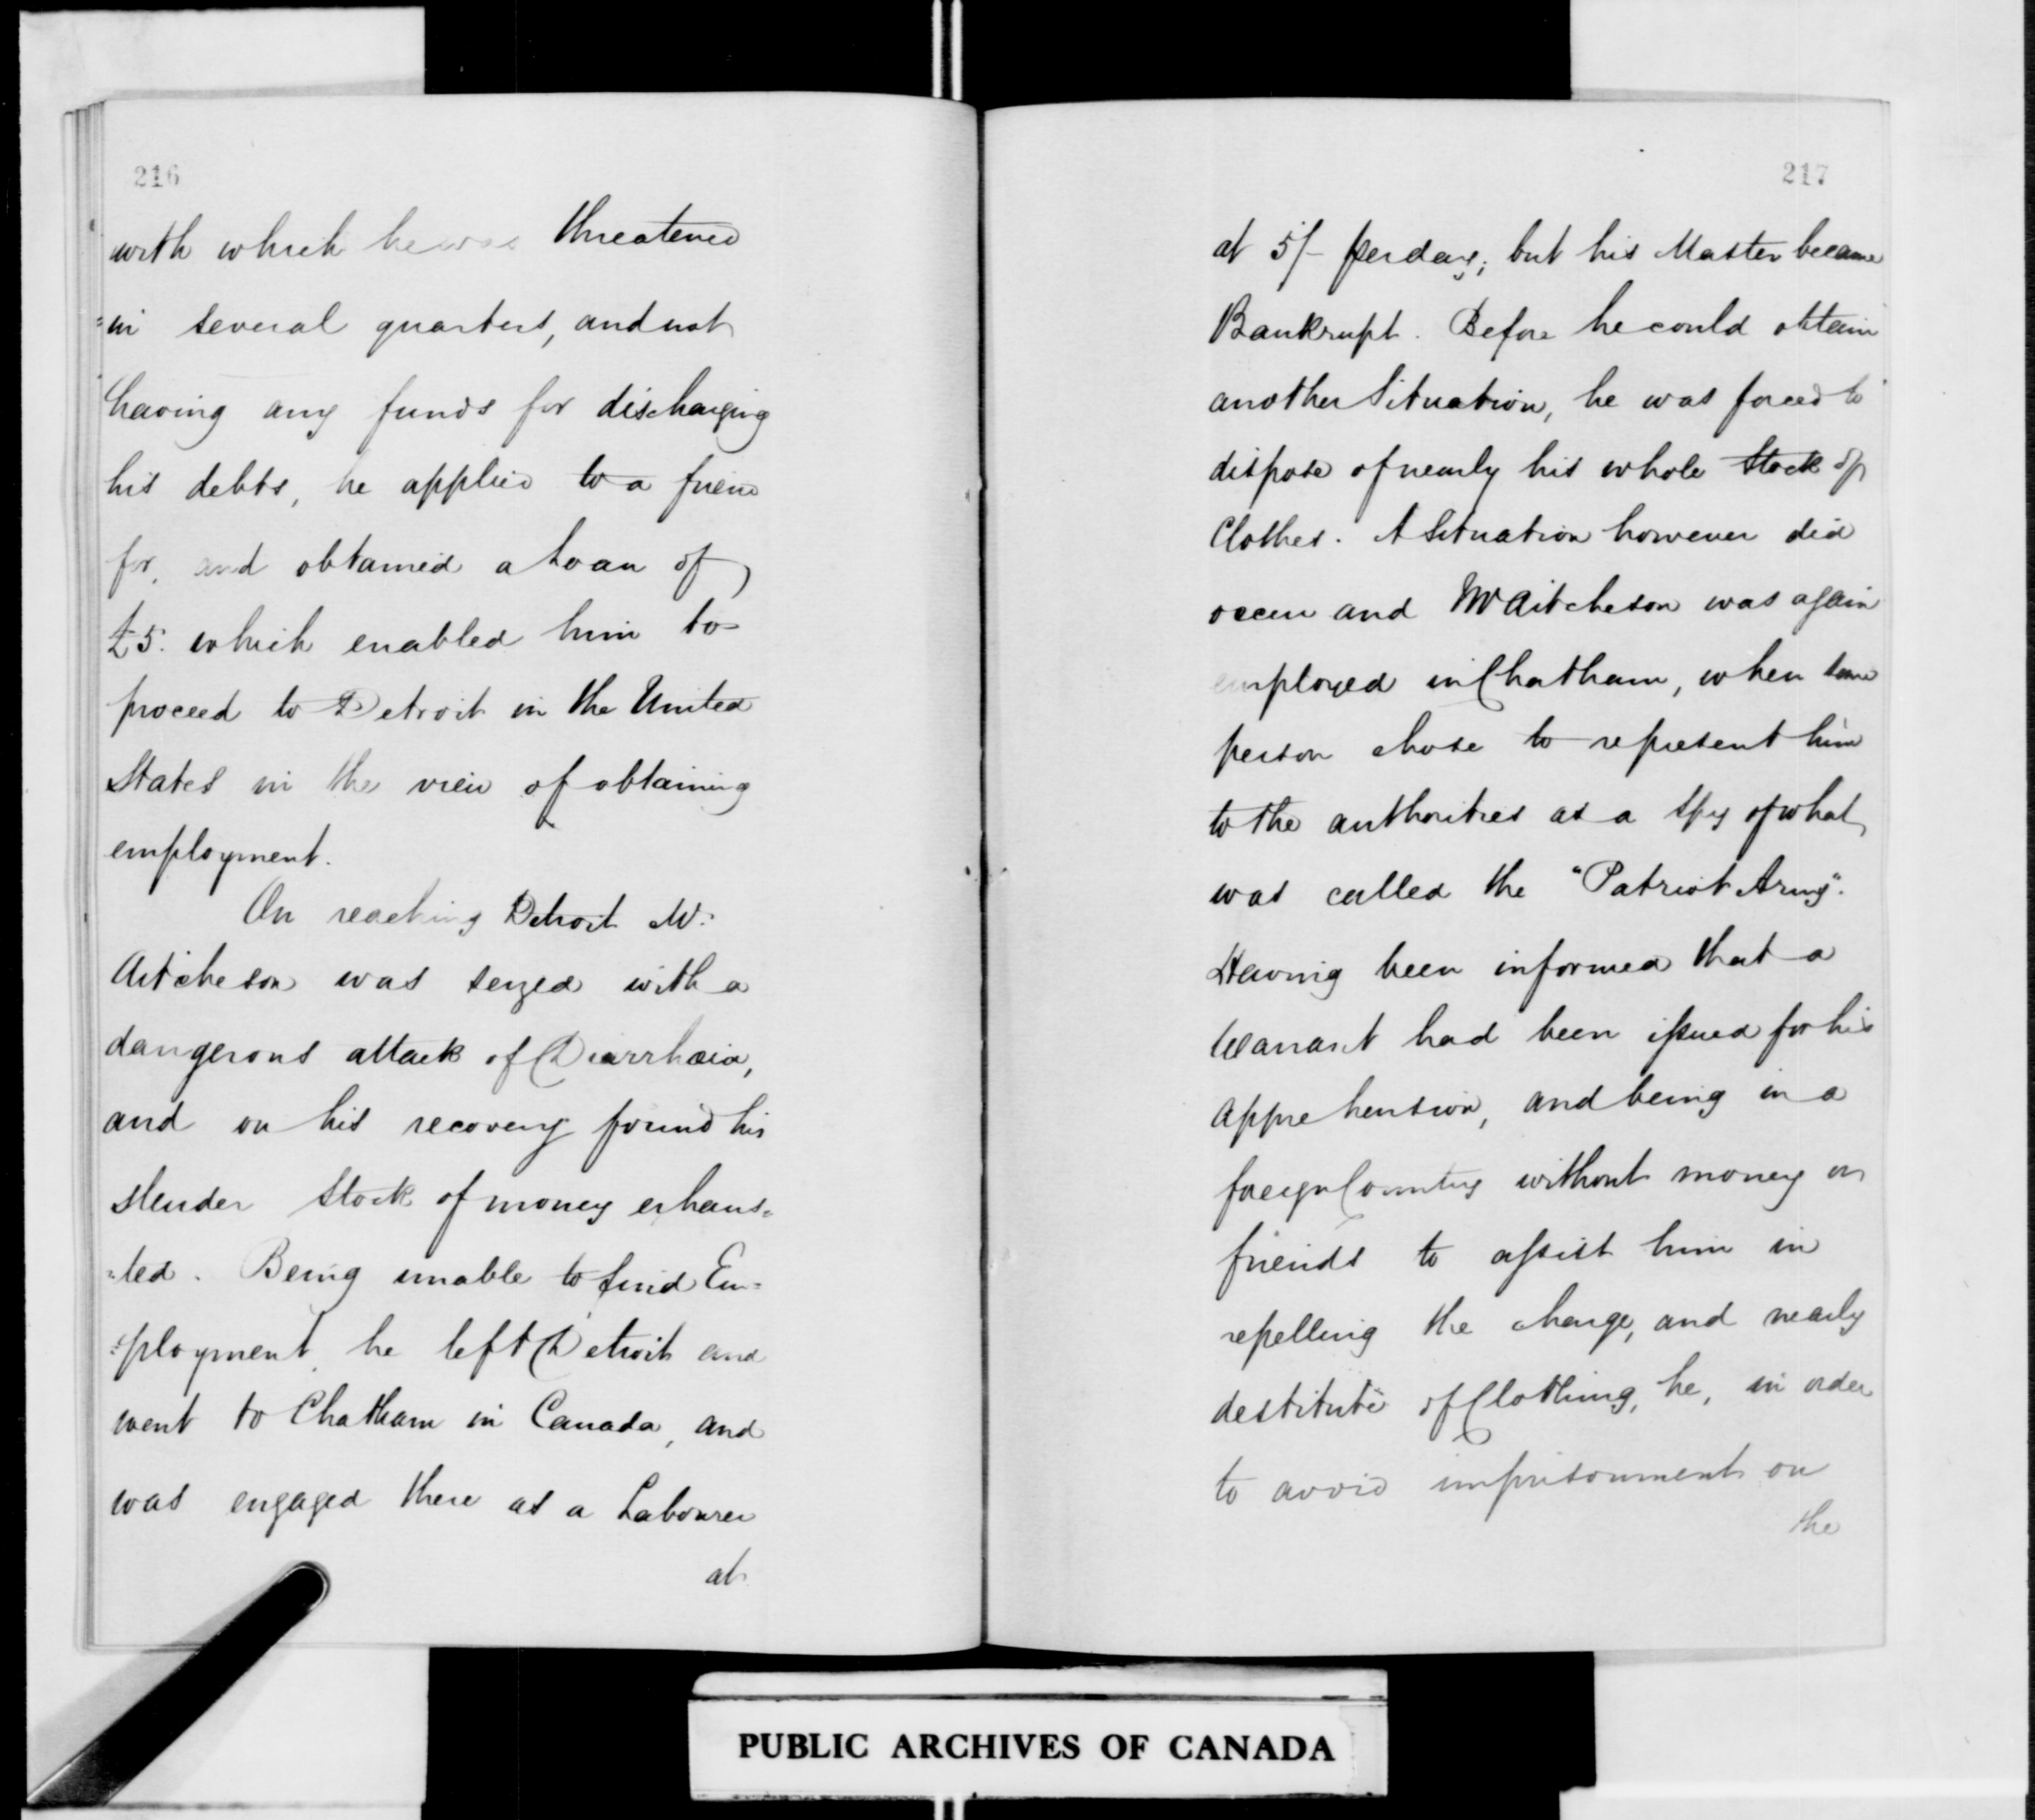 216
with which he was threatened
in several quarters, and not
having any funds for discharging
his debts, he applied to a friend
for, and obtained a Loan of
£5. which enabled him to
proceed to Detroit in the United
States in the view of obtaining
employment.
On reaching Detroit Mr.
Aitcheson was seized with a
dangerous attack of Diarrhœia,
and on his recovery found his
slender stock of money exhaus=
=ted. Being unable to find Em=
=ployment, he left Detroit and
went to Chatham in Canada, and
was engaged there as a Labourer
at
217
at 5/- per day; but his Master became
Bankrupt. Before he could obtain
another Situation, he was forced to
dispose of nearly his whole Stock of
Clothes. A Situation however did
occur and Mr Aitcheson was again
employed in Chatham, when some
person chose to represent him
to the authorities as a spy of what
was called the "Patriot Army".
Having been informed that a
Warrant had been issued for his
apprehension, and being in a
foreign Country without money or
friends to assist him in
repelling the charge, and nearly
destitute of Clothing, he, in order
to avoid imprisonment on
the
PUBLIC ARCHIVES OF CANADA